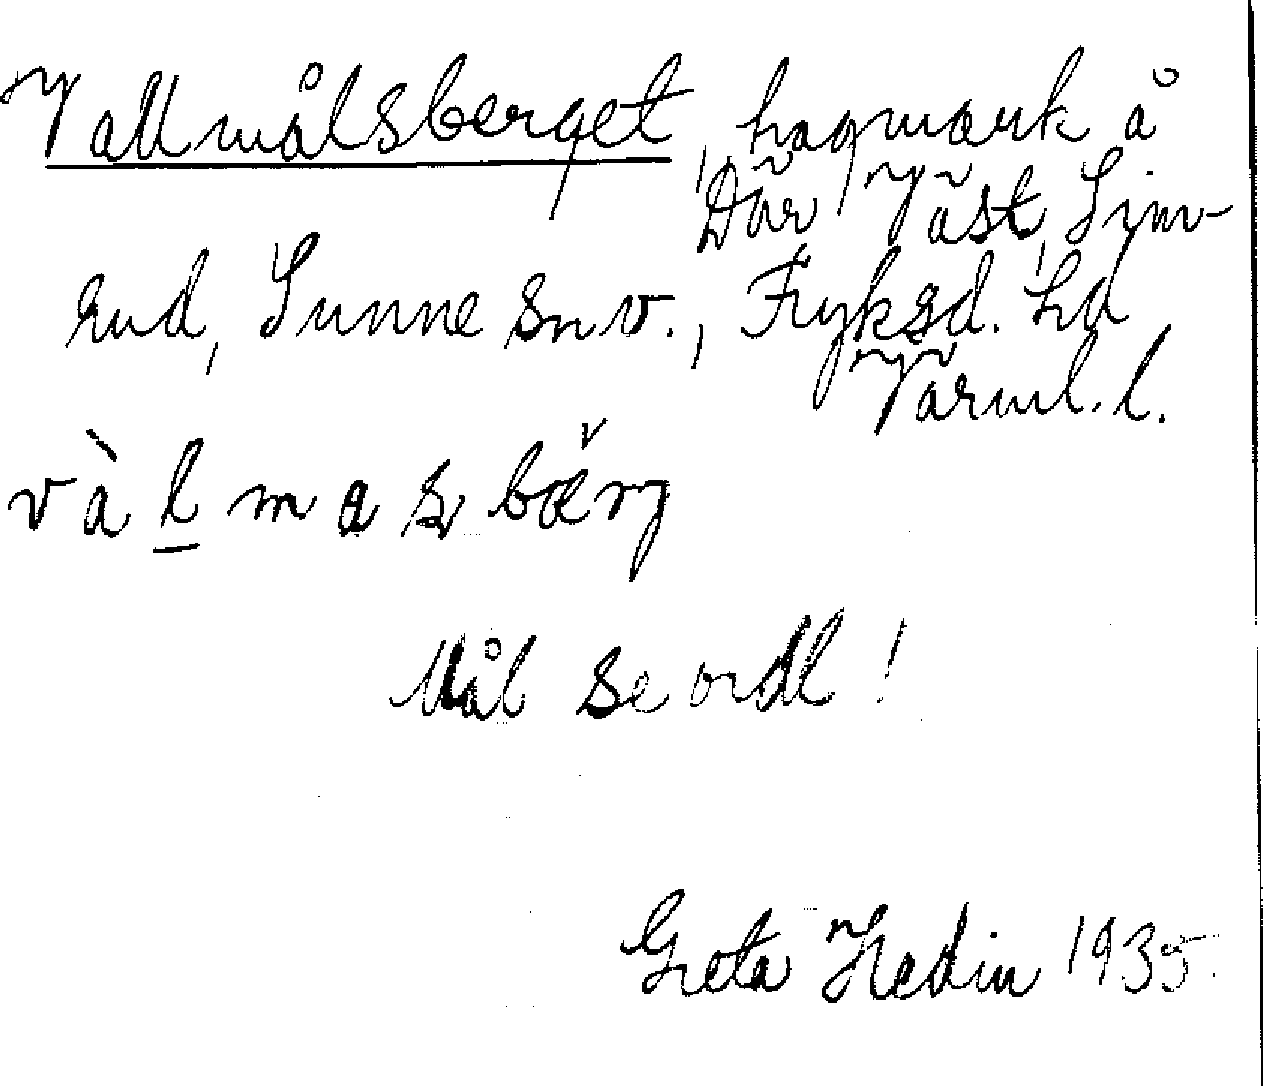 Vallmålsberget, hagmark å
Där Väst, Sim-
rud, Sunne snv., Fryksd. hd
Värml. l.
vàl mas bærg
Mål se ordl!
Greta Hedin 1935.